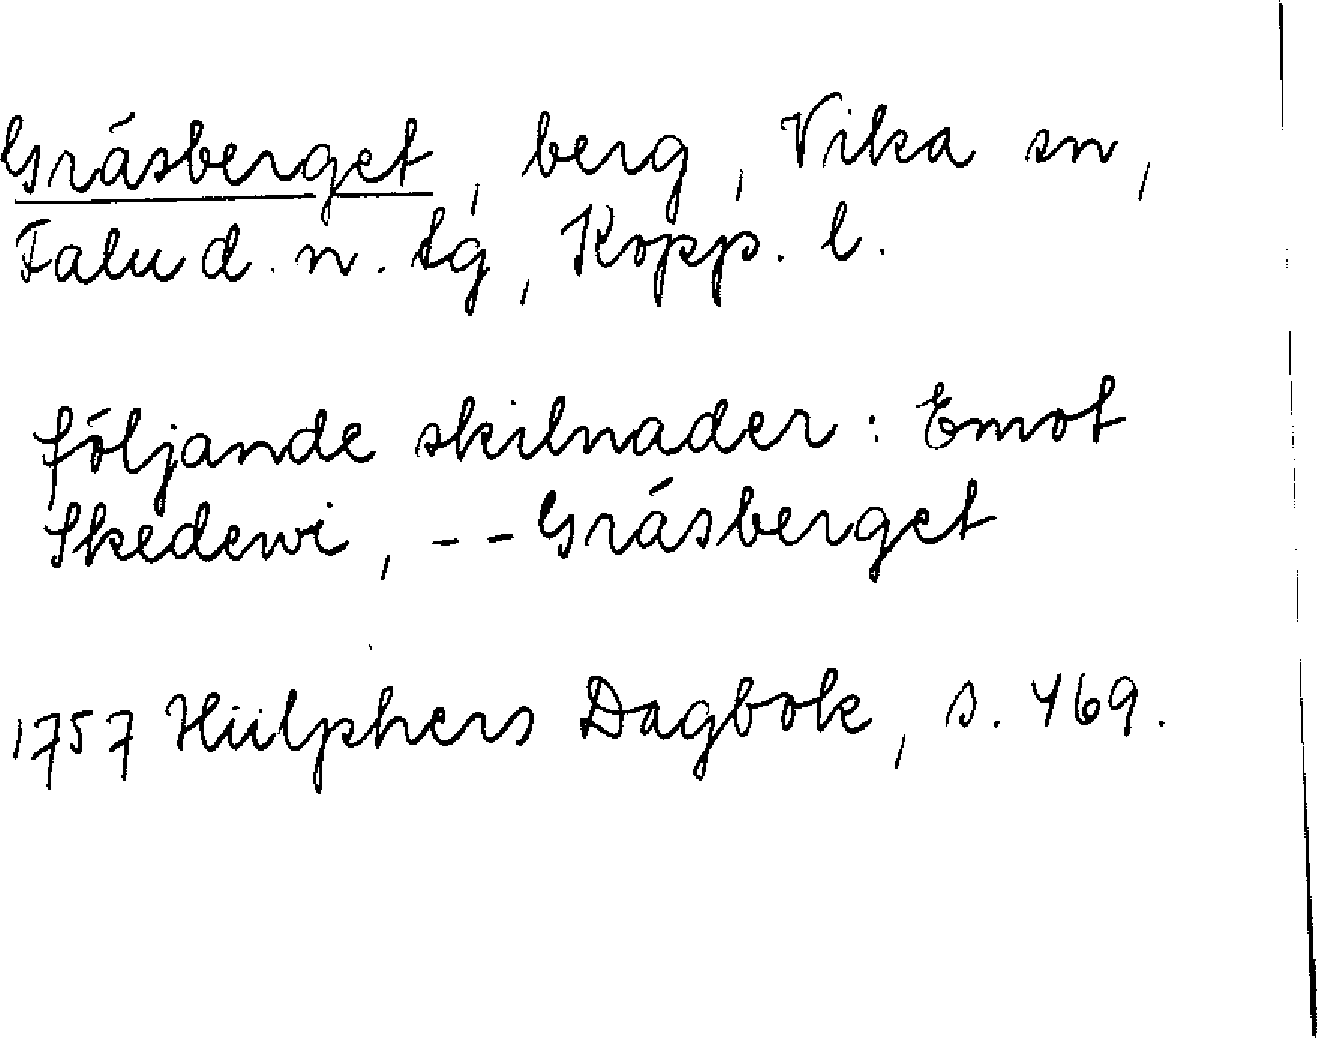 Gräsberget, berg, Vika sn,
Falu d. n. tg, Kopp. l.
följande skilnader: Emot
Skedewi, -- Gräsberget
1757 Hülphers Dagbok, s. 469.